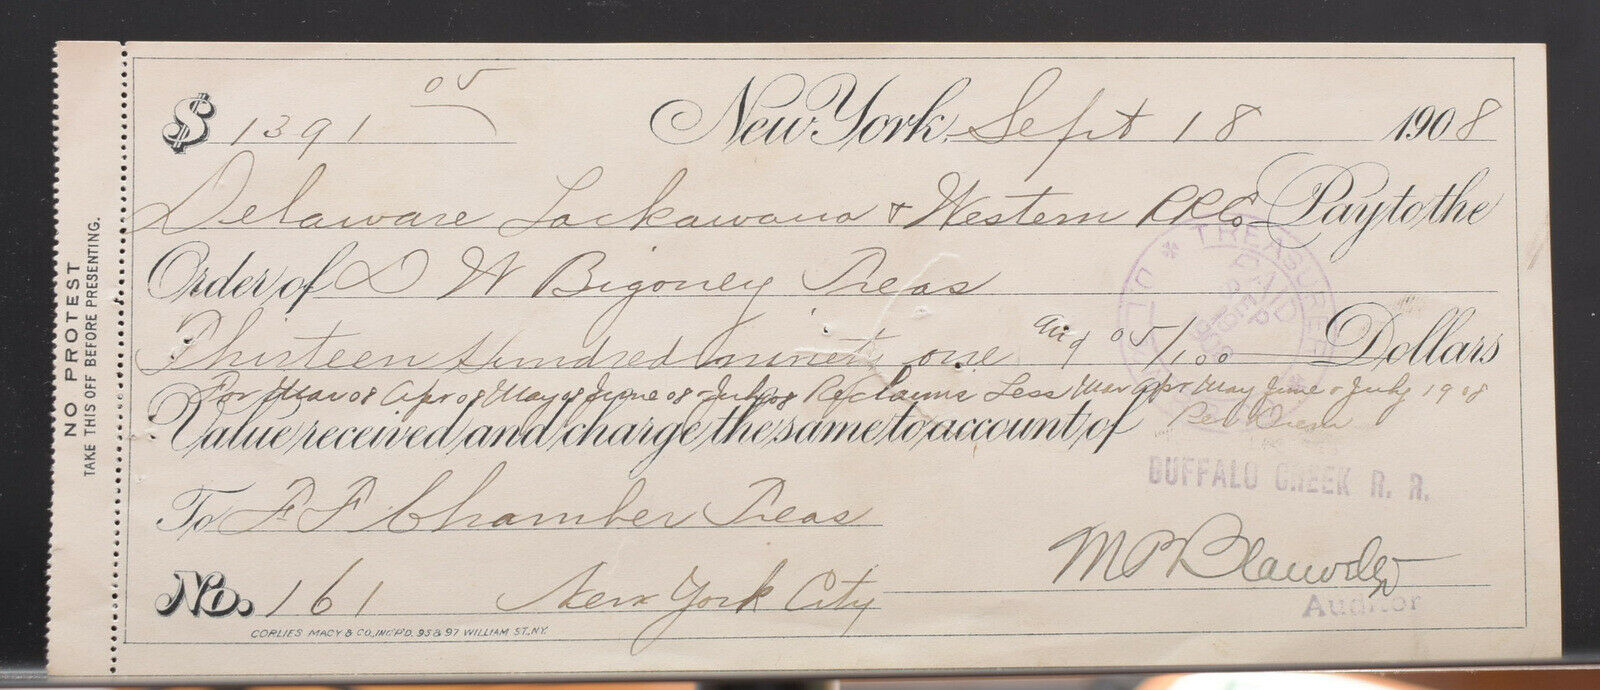 NO PROTEST
TAKE THIS OFF BEFORE PRESENTING.
$ 1391 05
New York, Sept 18 1908
Delaware Lackawana & Western RR Co Pay to the
Order of D W Bigoney Treas
Thirteen Hundred ninety one and 05/100 Dollars
For Mar 08 Apr 08 May 08 June 08 July 08 Reclaims Less Mar Apr May June & July 1908
Value received and charge the same to account of
TREASURER
PAID
SEP
1908
BUFFALO CREEK R. R.
To F F Chamber Treas
M P Blauvelt
Auditor
No. 161 New York City
CORLIES MACY & CO., INC'P'D. 95 & 97 WILLIAM ST., N.Y.